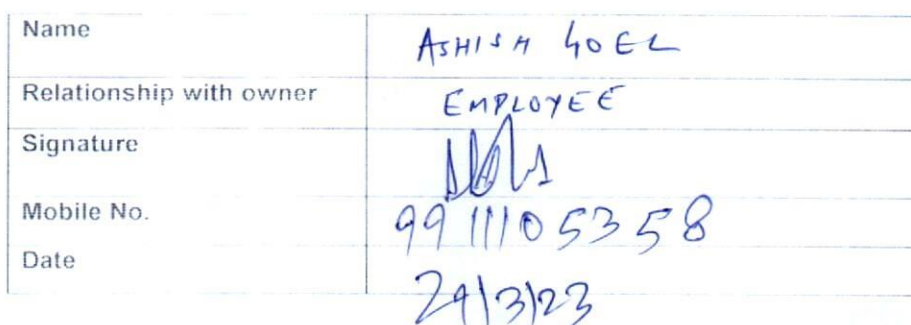 Name ASHISH GOEL
Relationship with owner EMPLOYEE
Signature
Mobile No. 9911105358
Date 29/3/23